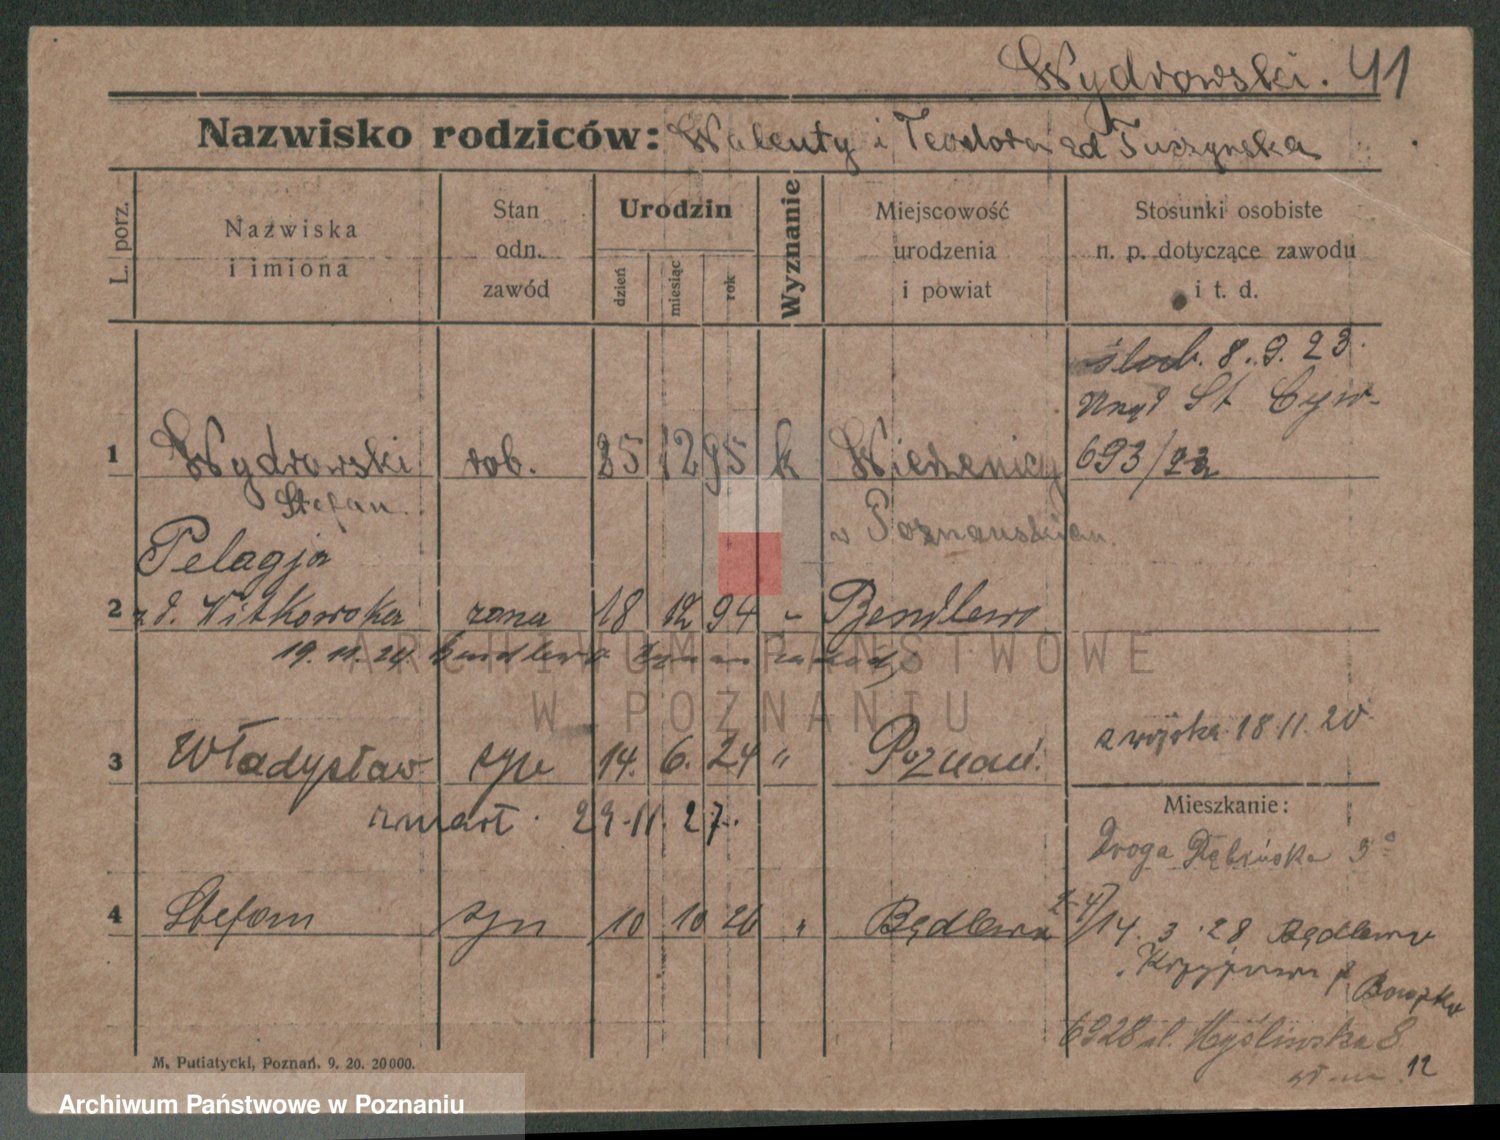 Wydrowski. 41
Nazwisko rodziców: Walenty i Teodora zd Tuszyńska
L. porz.
Nazwiska
i imiona
Stan
odn.
zawód
Urodzin
dzień
miesiąc
rok
Wyznanie
Miejscowość
urodzenia
i powiat
Stosunki osobiste
n. p. dotyczące zawodu
i t. d.
ślub. 8. 9. 23.
Urząd St Cyw-
1 Wydrowski rob. 25 12 95 k 693/23
Stefan
w Poznańskiem.
Pelagja
2 zd. Witkowska żona 18 12 94 " Bendlewo
19. 11. 24
ARCHIWUM PAŃSTWOWE
W POZNANIU
3 Władysław syn 14. 6. 24 " Poznań. z wojska 18 11. 20
zmarł. 29. 11. 27.
Mieszkanie:
Droga Dębińska 3
4 Stefan syn 10 10 26 " Będlewo 14. 3. 28 Będlewo
ul. Myśliwska 8
12
M. Putiatycki, Poznań. 9. 20. 20000.
Archiwum Państwowe w Poznaniu